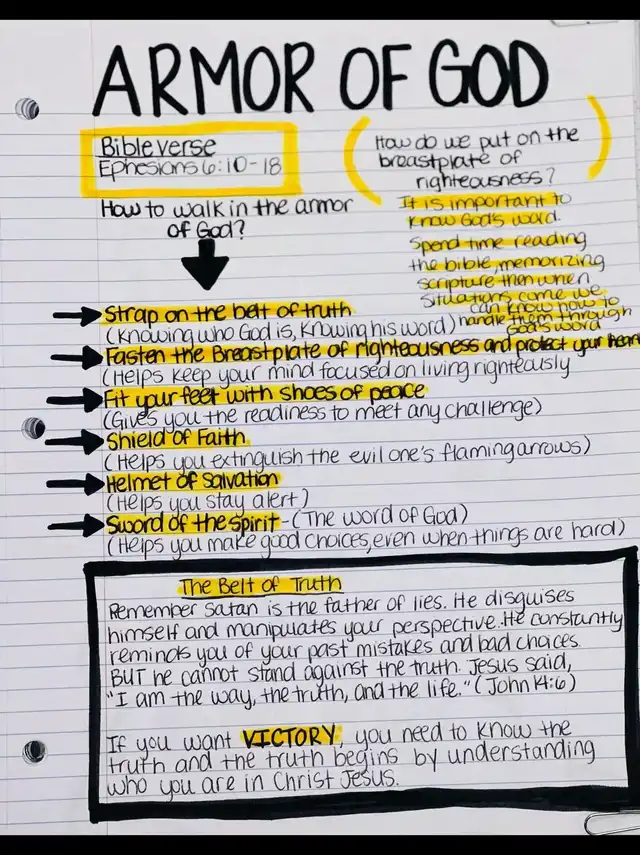 ARMOR OF GOD
Bible verse
Ephesians 6:10-18
How to walk in the armor
of God?
How do we put on the
breastplate of
righteousness?
It is important to
know God's word.
Spend time reading
the bible, memorizing
scripture then when
situations come we
can know how to
handle them through
God's word
Strap on the belt of truth
(Knowing who God is, Knowing his word)
Fasten the Breastplate of righteousness and protect your heart
(Helps keep your mind focused on living righteously
Fit your feet with shoes of peace
(Gives you the readiness to meet any challenge)
Shield of Faith
(Helps you extinguish the evil one's flaming arrows)
Helmet of Salvation
(Helps you stay alert)
Sword of the Spirit - (The word of God)
(Helps you make good choices, even when things are hard)
The Belt of Truth
Remember Satan is the father of lies. He disguises
himself and manipulates your perspective. He constantly
reminds you of your past mistakes and bad choices.
BUT he cannot stand against the truth. Jesus said,
"I am the way, the truth, and the life." (John 14:6)
If you want VICTORY, you need to know the
truth and the truth begins by understanding
who you are in Christ Jesus.